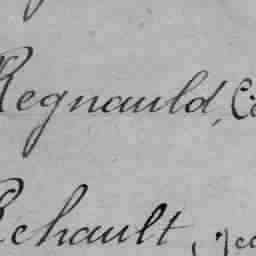 Regnauld, C
Rehault,